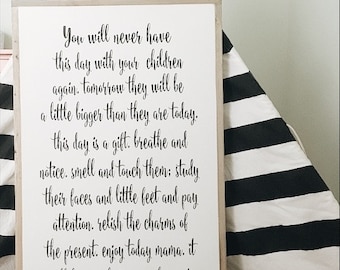 You will never have
this day with your children
again. tomorrow they will be
a little bigger than they are today.
this day is a gift. breathe and
notice. smell and touch them; study
their faces and little feet and pay
attention. relish the charms of
the present. enjoy today mama. it